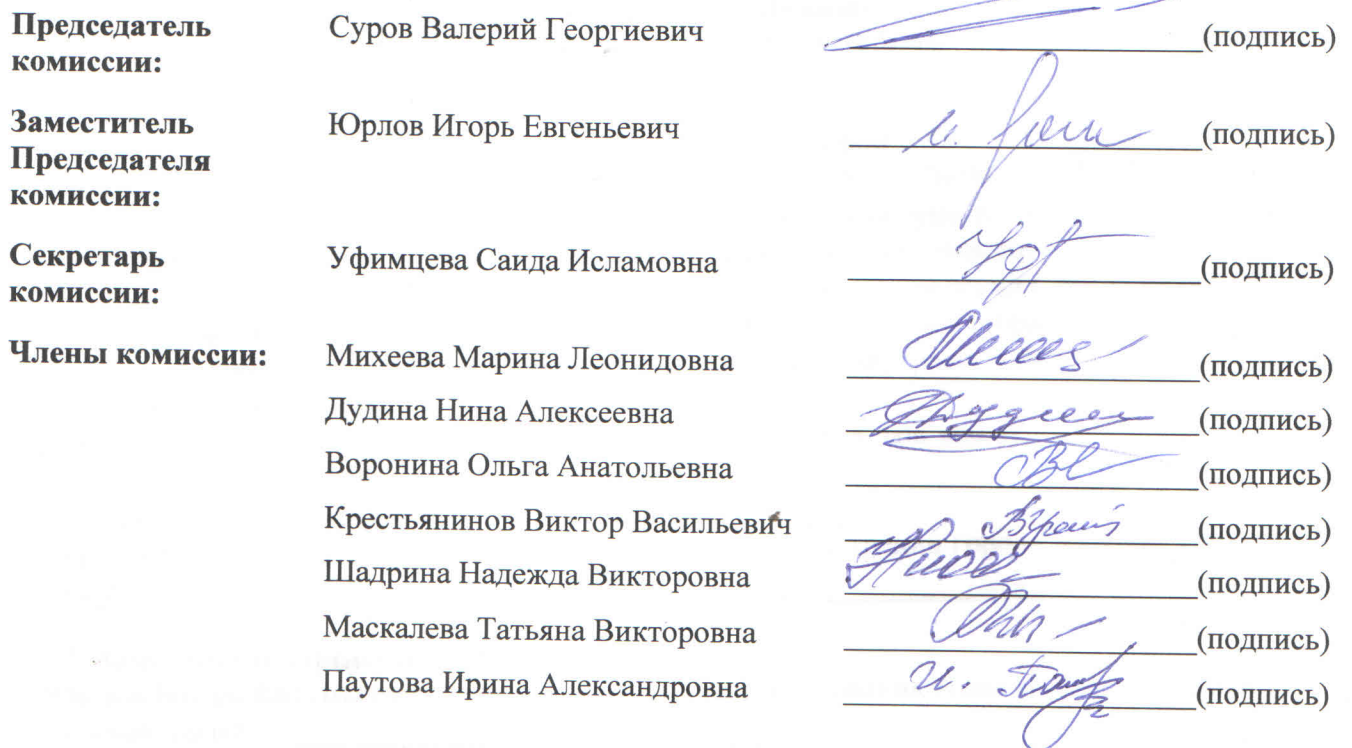 Председатель Суров Валерий Георгиевич (подпись)
комиссии:
Заместитель Юрлов Игорь Евгеньевич (подпись)
Председателя
комиссии:
Секретарь Уфимцева Саида Исламовна (подпись)
комиссии:
Члены комиссии: Михеева Марина Леонидовна (подпись)
Дудина Нина Алексеевна (подпись)
Воронина Ольга Анатольевна (подпись)
Крестьянинов Виктор Васильевич (подпись)
Шадрина Надежда Викторовна (подпись)
Маскалева Татьяна Викторовна (подпись)
Паутова Ирина Александровна (подпись)